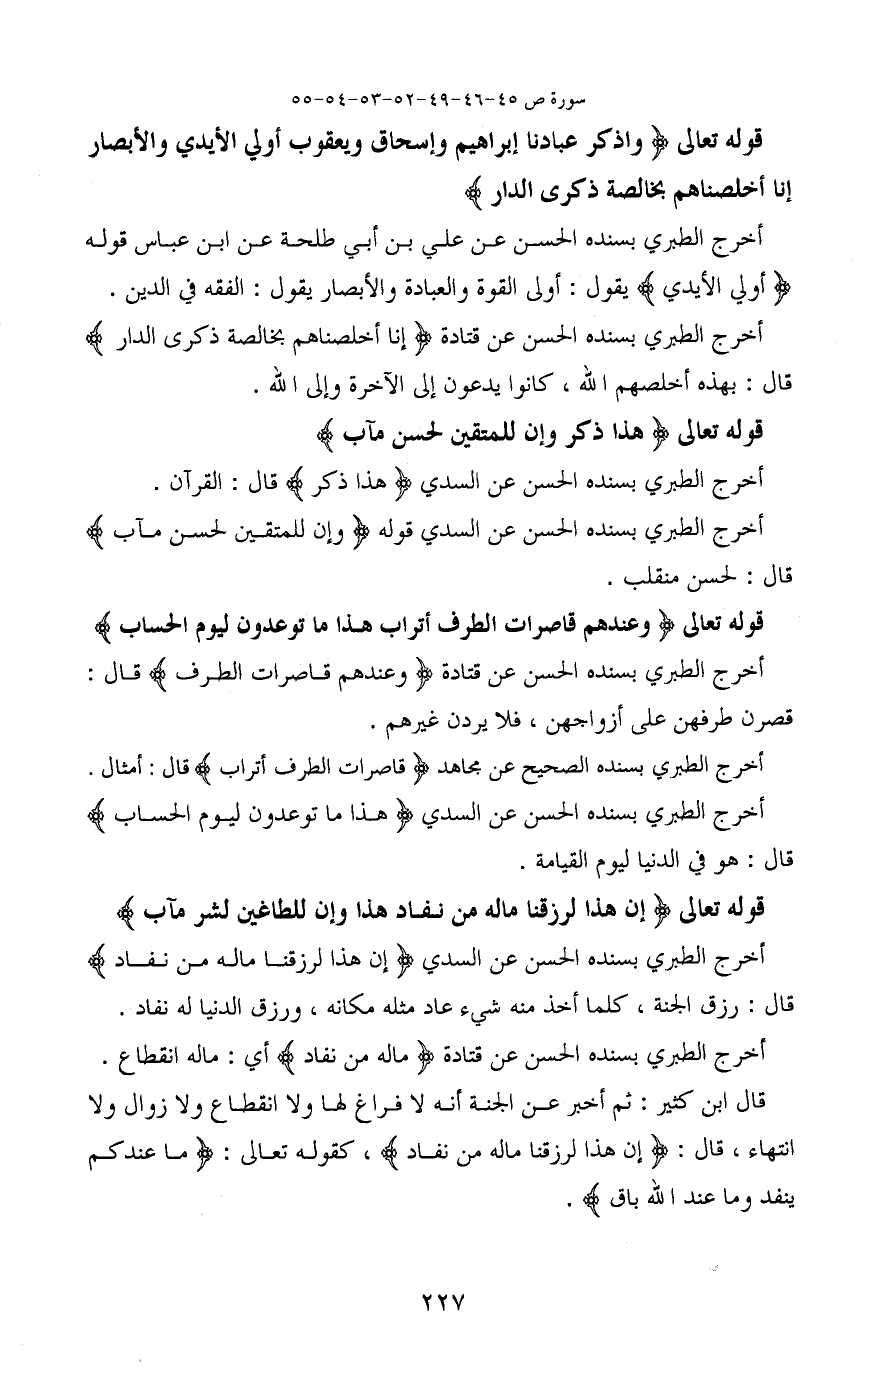 سورة ص ٤٥-٤٦-٤٩-٥٢-٥٣-٥٤-٥٥
قوله تعالى ﴿ واذكر عبادنا إبراهيم وإسحاق ويعقوب أولي الأيدي والأبصار
إنا أخلصناهم بخالصة ذكرى الدار ﴾
أخرج الطبري بسنده الحسن عن علي بن أبي طلحة عن ابن عباس قوله
﴿ أولي الأيدي ﴾ يقول : أولى القوة والعبادة والأبصار يقول : الفقه في الدين .
أخرج الطبري بسنده الحسن عن قتادة ﴿ إنا أخلصناهم بخالصة ذكرى الدار ﴾
قال : بهذه أخلصهم الله ، كانوا يدعون إلى الآخرة وإلى الله .
قوله تعالى ﴿ هذا ذكر وإن للمتقين لحسن مآب ﴾
أخرج الطبري بسنده الحسن عن السدي ﴿ هذا ذكر ﴾ قال : القرآن .
أخرج الطبري بسنده الحسن عن السدي قوله ﴿ وإن للمتقين لحسن مآب ﴾
قال : لحسن منقلب .
قوله تعالى ﴿ وعندهم قاصرات الطرف أتراب هذا ما توعدون ليوم الحساب ﴾
أخرج الطبري بسنده الحسن عن قتادة ﴿ وعندهم قاصرات الطرف ﴾ قال :
قصرن طرفهن على أزواجهن ، فلا يردن غيرهم .
أخرج الطبري بسنده الصحيح عن مجاهد ﴿ قاصرات الطرف أتراب ﴾ قال : أمثال .
أخرج الطبري بسنده الحسن عن السدي ﴿ هذا ما توعدون ليوم الحساب ﴾
قال : هو في الدنيا ليوم القيامة .
قوله تعالى ﴿ إن هذا لرزقنا ماله من نفاد هذا وإن للطاغين لشر مآب ﴾
أخرج الطبري بسنده الحسن عن السدي ﴿ إن هذا لرزقنا ماله من نفاد ﴾
قال : رزق الجنة ، كلما أخذ منه شيء عاد مثله مكانه ، ورزق الدنيا له نفاد .
أخرج الطبري بسنده الحسن عن قتادة ﴿ ماله من نفاد ﴾ أي : ماله انقطاع .
قال ابن كثير : ثم أخبر عن الجنة أنه لا فراغ لها ولا انقطاع ولا زوال ولا
انتهاء ، قال : ﴿ إن هذا لرزقنا ماله من نفاد ﴾ ، كقوله تعالى : ﴿ ما عندكم
ينفد وما عند الله باق ﴾ .
٢٢٧